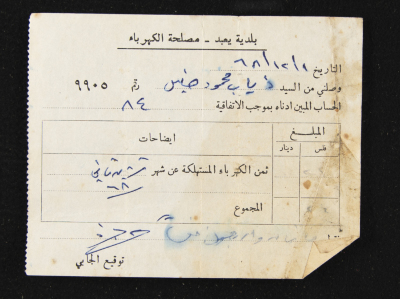 بلدية يعبد - مصلحة الكهرباء
التاريخ ٦٨/١٢/١
وصلني من السيد ذياب محمود رقم ٩٩٠٥
الحساب المبين ادناه بموجب الاتفاقية ٨٤
المبلغ ايضاحات
فلس دينار
ثمن الكهرباء المستهلكة عن شهر تشرين ثاني
٦٨
المجموع
توقيع الجابي